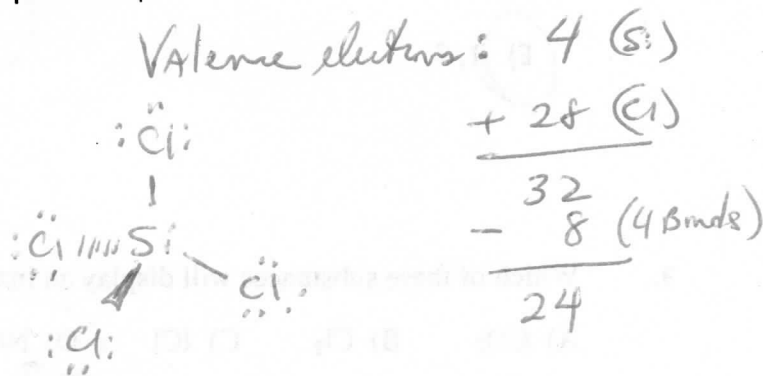 Valence elections: 4 (Si)
+ 28 (Cl)
32
- 8 (4 Bonds)
24
:Cl:
:Cl Si Cl:
:Cl: